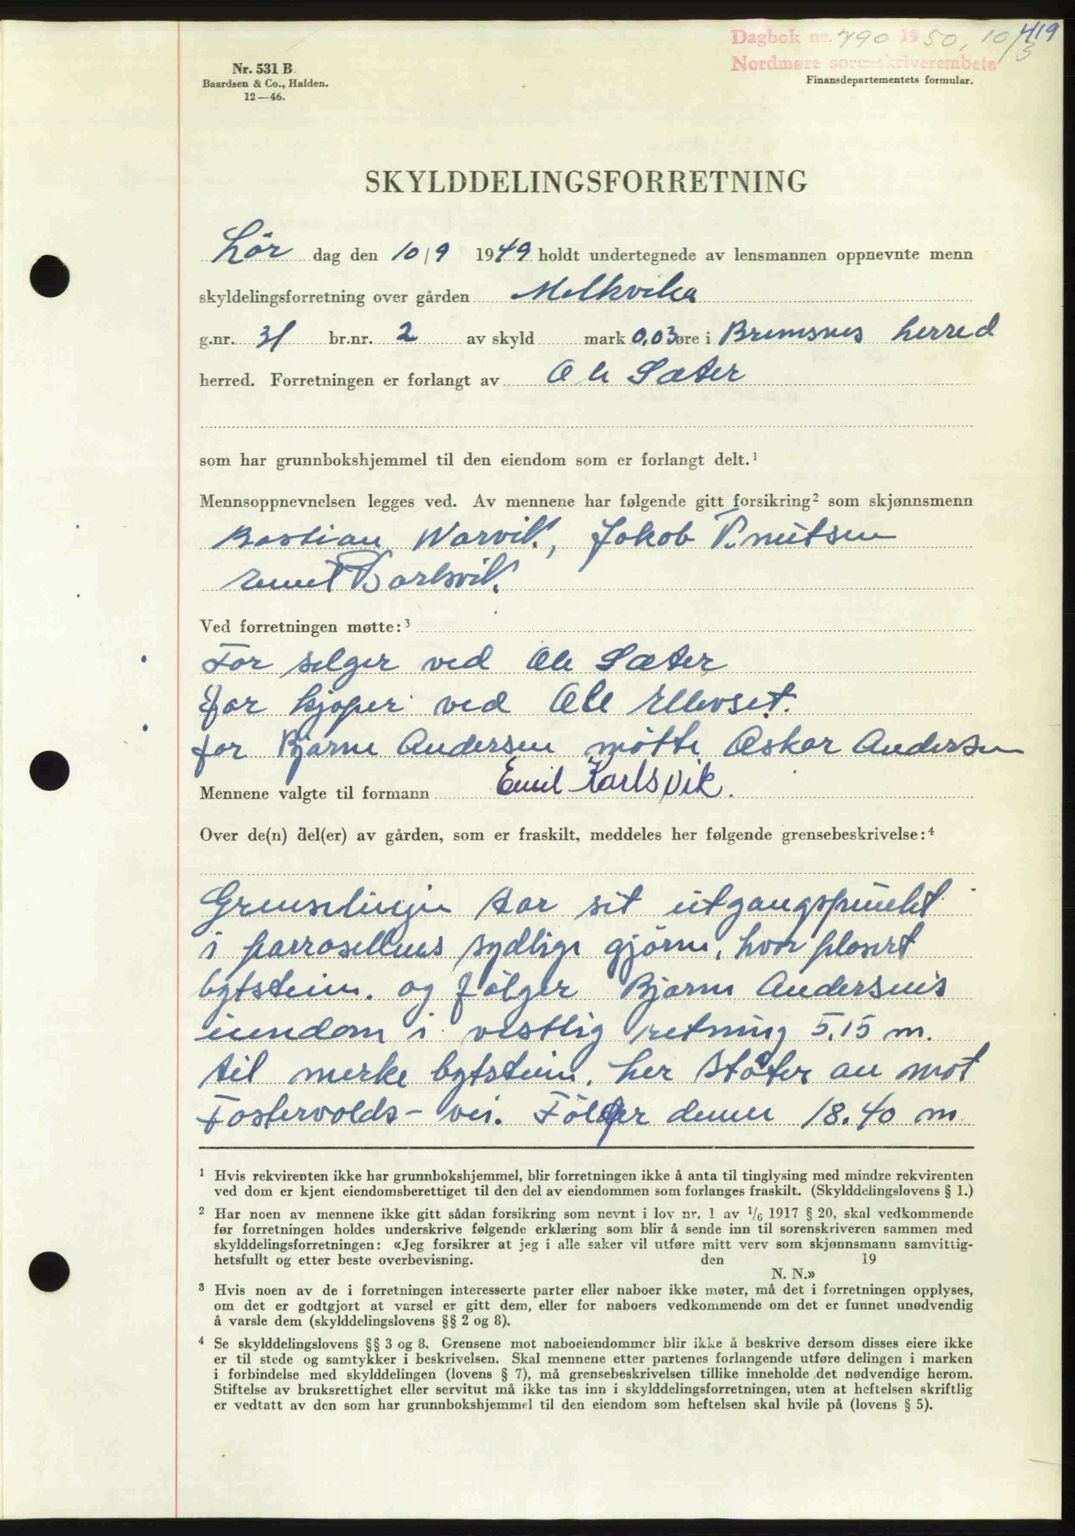 419
Dagbok nr. 790 1950, 10/3
Nordmøre sorenskriverembete
Nr. 531 B
Baardsen & Co., Halden.
12—46.
Finansdepartementets formular.
SKYLDDELINGSFORRETNING
Lör dag den 10/9 1949 holdt undertegnede av lensmannen oppnevnte menn
skyldelingsforretning over gården Melkvika
g.nr. 31 br.nr. 2 av skyld mark 0,03 øre i Bremsnes herred
herred. Forretningen er forlangt av Ole Sæter
som har grunnbokshjemmel til den eiendom som er forlangt delt.¹
Mennsoppnevnelsen legges ved. Av mennene har følgende gitt forsikring² som skjønnsmenn
Bastian Warvik, Jakob Knutsen
Emil Karlsvik
Ved forretningen møtte:³
For selger ved Ole Sæter
for kjøper ved Ole Ellevset.
for Bjarne Andersen møtte Oskar Andersen
Mennene valgte til formann Emil Karlsvik.
Over de(n) del(er) av gården, som er fraskilt, meddeles her følgende grensebeskrivelse:⁴
Grenselinjen tar sit utgangspunkt
i parrosellens sydlige gjörne, hvor plasert
bytstein. og fölger Bjarne Andersens
eiendom i vestlig retning 5.15 m.
til merke bytstein, her støter an mot
Fostervolds-vei. Fölger denne 18.40 m
¹ Hvis rekvirenten ikke har grunnbokshjemmel, blir forretningen ikke å anta til tinglysing med mindre rekvirenten
ved dom er kjent eiendomsberettiget til den del av eiendommen som forlanges fraskilt. (Skylddelingslovens § 1.)
² Har noen av mennene ikke gitt sådan forsikring som nevnt i lov nr. 1 av 1/6 1917 § 20, skal vedkommende
før forretningen holdes underskrive følgende erklæring som blir å sende inn til sorenskriveren sammen med
skylddelingsforretningen: «Jeg forsikrer at jeg i alle saker vil utføre mitt verv som skjønnsmann samvittig-
hetsfullt og etter beste overbevisning. den 19
N. N.»
³ Hvis noen av de i forretningen interesserte parter eller naboer ikke møter, må det i forretningen opplyses,
om det er godtgjort at varsel er gitt dem, eller for naboers vedkommende om det er funnet unødvendig
å varsle dem (skylddelingslovens §§ 2 og 8).
⁴ Se skylddelingslovens §§ 3 og 8. Grensene mot naboeiendommer blir ikke å beskrive dersom disses eiere ikke
er til stede og samtykker i beskrivelsen. Skal mennene etter partenes forlangende utføre delingen i marken
i forbindelse med skylddelingen (lovens § 7), må grensebeskrivelsen tillike inneholde det nødvendige herom.
Stiftelse av bruksrettighet eller servitut må ikke tas inn i skylddelingsforretningen, uten at heftelsen skriftlig
er vedtatt av den som har grunnbokshjemmel til den eiendom som heftelsen skal hvile på (lovens § 5).